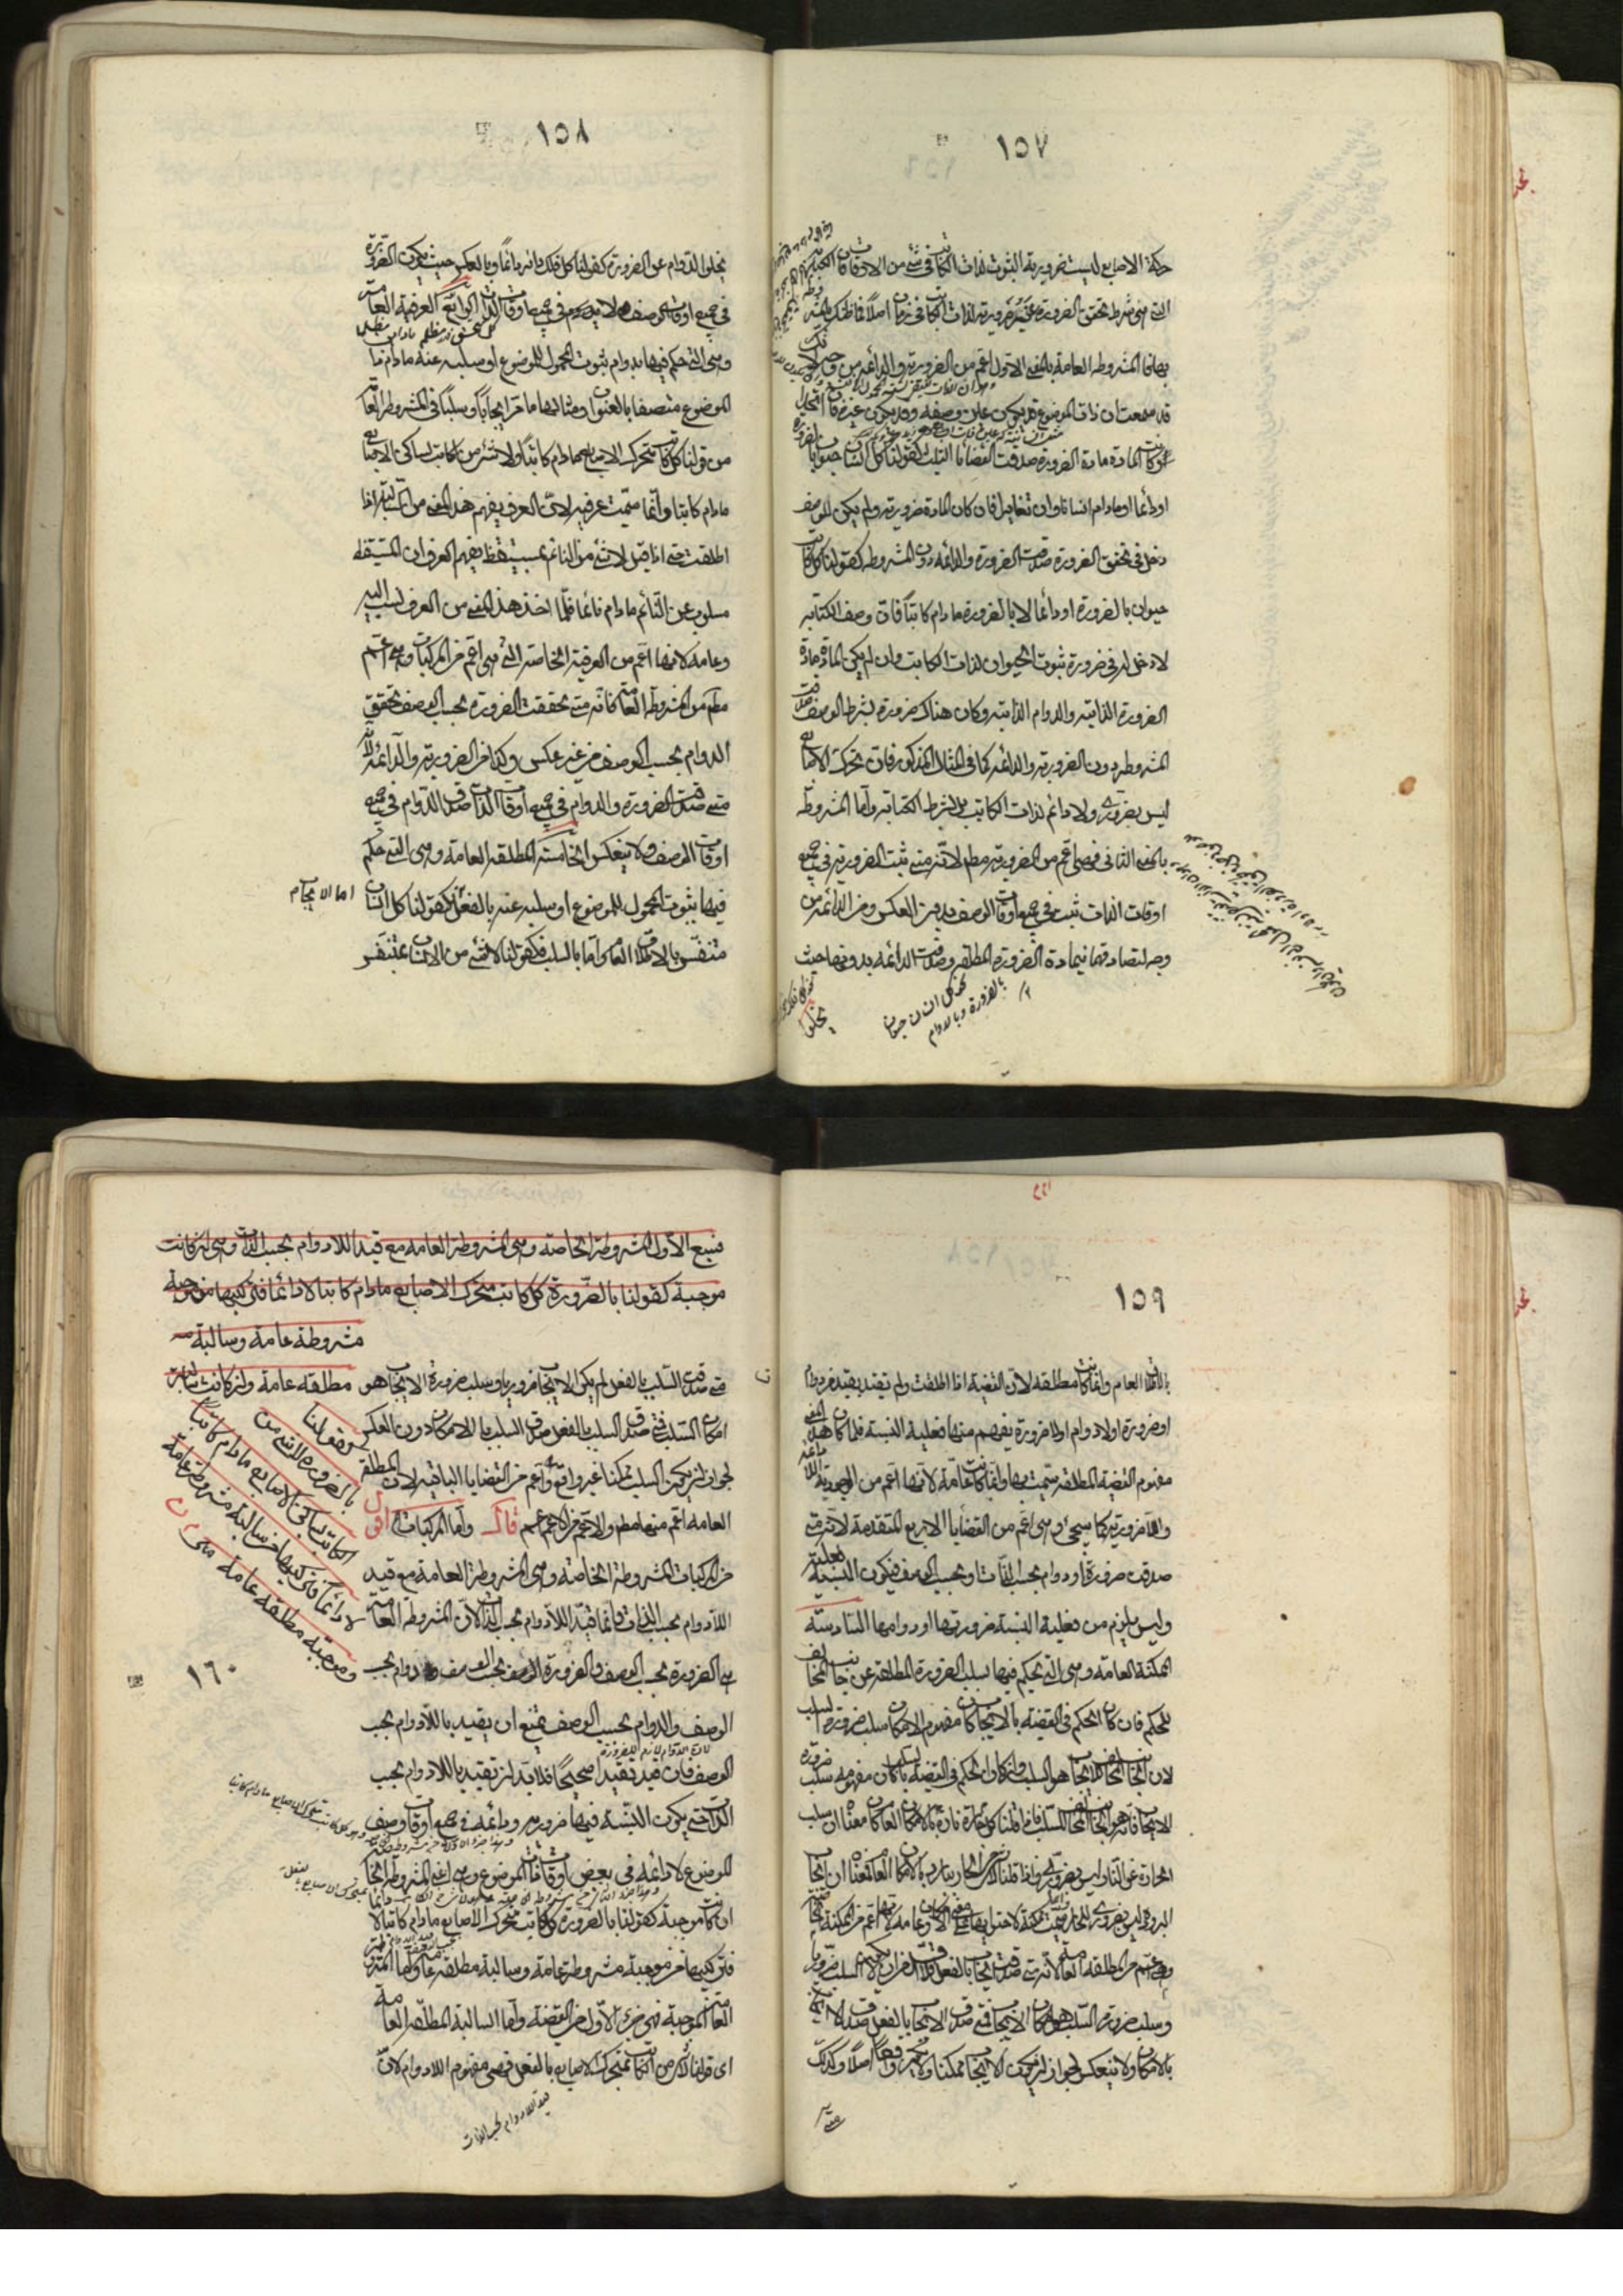 ١٥٧
حركة الاصابع ليست ضرورية الثبوت لذات الكاتب فى شئ من الاوقات فان الكتابة
التى هى شرط تحقق الضرورة غير ضرورية لذات الكاتب فى زمان اصلا فما ظنك
بها فالمشروطة العامة بالمعنى الاول اعم من الضرورية والدائمة من وجه لانك
قد سمعت ان ذات الموضوع قد يكون عين وصفه وقد يكون غيره فاذا اتحدا
وكانت المادة مادة الضرورة صدقت القضايا الثلث كقولنا كل انسان حيوان بالضرورة
او دائما او مادام انسانا وان تغايرا فان كان المادة ضرورية ولم يكن للوصف
دخل فى تحقق الضرورة صدقت الضرورة والدائمة دون المشروطة كقولنا كل كاتب
حيوان بالضرورة او دائما لا بالضرورة مادام كاتبا فان وصف الكتابة
لا دخل له فى ضرورة ثبوت الحيوان لذات الكاتب وان لم يكن المادة مادة
الضرورة الذاتية والدوام الذاتية وكان هناك ضرورة بشرط الوصف صدقت
المشروطة دون الضرورية والدائمة كما فى المثال المذكور فان تحرك الاصابع
ليس بضرورى ولا دائم لذات الكاتب بل بشرط الكتابة واما المشروطة
بالمعنى الثانى فهى اعم من الضرورية مطم لانه متى ثبت الضرورية فى جميع
اوقات الذات ثبت فى جميع اوقات الوصف بدون العكس ومن الدائمة من
وجه لتصادقهما فى مادة الضرورة المطلقة وصدقت الدائمة بدونها حيث
كل انسان حيوان
بالضرورة وبالدوام
يخلوا
١٥٨
يخلوا الدوام عن الضرورة كقولنا كل فلك دائر دائما وبالعكس حيث يكون الضرورة
فى جميع اوقات الوصف ولا يدوم فى جميع اوقات الذات الرابعة العرفية العامة
وهى التى حكم فيها بدوام ثبوت المحمول للموضوع او سلبه عنه مادام ذات
الموضوع متصفا بالعنوان ومثالهما ما مر ايجابا وسلبا فى المشروطة العامة
من قولنا كل كاتب متحرك الاصابع مادام كاتبا ولا شئ من الكاتب بساكن الاصابع
مادام كاتبا وانما سميت عرفية لان العرف يفهم هذا المعنى من السالبة اذا
اطلقت حتى اذا قيل لا شئ من النائم بمستيقظ يفهم العرف ان المستيقظ
مسلوب عن النائم مادام نائما فلما اخذ هذا المعنى من العرف نسب اليه
وعامة لانها اعم من العرفية الخاصة التى هى اعم من المركبات وهى اعم
مطم من المشروطة العامة فانه متى تحققت الضرورة بحسب الوصف تحقق
الدوام بحسب الوصف من غير عكس وكذا من الضرورية والدائمة لانه
متى صدقت الضرورة والدوام فى جميع اوقات الذات صدق الدوام فى جميع
اوقات الوصف ولا ينعكس الخامسة المطلقة العامة وهى التى حكم
فيها بثبوت المحمول للموضوع او سلبه عنه بالفعل كقولنا كل انسان
اما الايجاب
متنفس بالاطلاق العام واما بالسلب فكقولنا لا شئ من الانسان بمتنفس
١٥٩
بالاطلاق العام وانما كانت مطلقة لان القضية اذا اطلقت ولم تقيد بقيد من دوام
او ضرورة او لا دوام او لا ضرورة يفهم منها فعلية النسبة فلما كان هذا المعنى
مفهوم القضية المطلقة سميت بها وانما كانت عامة لانها اعم من الوجودية اللادائمة
واللاضرورية كما سيجئ وهى اعم من القضايا الاربع المتقدمة لانه متى
صدقت ضرورة او دوام بحسب الذات او بحسب الوصف فيكون النسبة فعلية
وليس يلزم من فعلية النسبة ضرورتها او دوامها السادسة
الممكنة العامة وهى التى يحكم فيها بسلب الضرورة المطلقة عن جانب المخالف
للحكم فان كان الحكم فى القضية بالايجاب كان مفهوم الامكان سلب ضرورة السلب
لان الجانب المخالف للايجاب هو السلب وان كان الحكم فى القضية بالسلب كان مفهومه سلب ضرورة
الايجاب فانه هو الجانب المخالف للسلب فاذا قلنا كل نار حارة بالامكان العام كان معناه ان سلب
الحرارة عن النار ليس بضرورى واذا قلنا لا شئ من الحار ببارد بالامكان العام فمعناه ان ايجاب
البرودة ليس بضرورى للحار وسميت ممكنة لاحتوائها على معنى الامكان وعامة لانها اعم من الممكنة الخاصة
وهى اعم من المطلقة العامة لانه متى صدق الايجاب بالفعل فلا اقل من ان لا يكون السلب ضروريا
وسلب ضرورة السلب هو امكان الايجاب فمتى صدق الايجاب بالفعل صدق الايجاب
بالامكان ولا ينعكس لجواز ان يكون الايجاب ممكنا ولا يكون واقعا اصلا وكذلك
متى
فسبع الاولى المشروطة الخاصة وهى المشروطة العامة مع قيد اللادوام بحسب الذات وهى ان كانت
موجبة كقولنا بالضرورة كل كاتب متحرك الاصابع مادام كاتبا لا دائما فتركيبها من موجبة
مشروطة عامة وسالبة
مطلقة عامة وان كانت سالبة
كقولنا
بالضرورة لا شئ من
الكاتب بساكن الاصابع مادام كاتبا
لا دائما فتركيبها من سالبة مشروطة عامة
وموجبة مطلقة عامة
متى صدق السلب بالفعل لم يكن الايجاب ضروريا وسلب ضرورة الايجاب هو
امكان السلب فمتى صدق السلب بالفعل صدق السلب بالامكان دون العكس
لجواز ان يكون السلب ممكنا غير واقع واعم من القضايا الباقية لان المطلقة
العامة اعم منها مطم والاعم من الاعم اعم قال واما المركبات اقول
من المركبات المشروطة الخاصة وهى المشروطة العامة مع قيد
اللادوام بحسب الذات وانما قيد اللادوام بحسب الذات لان المشروطة العامة
هى الضرورة بحسب الوصف والضرورة بحسب الوصف دوام بحسب
١٦٠
الوصف والدوام بحسب الوصف يمتنع ان يقيد باللادوام بحسب
لان الدوام لازم للضرورة
الوصف فان قيد تقييدا صحيحا فلابد ان تقيد باللادوام بحسب
الذات حتى يكون النسبة فيها ضرورية ودائمة فى جميع اوقات وصف
الموضوع لا دائمة فى بعض اوقات ذات الموضوع وهى اعنى المشروطة الخاصة
ان كانت موجبة كقولنا بالضرورة كل كاتب متحرك الاصابع مادام كاتبا لا دائما
فتركيبها من موجبة مشروطة عامة وسالبة مطلقة عامة اما المشروطة
العامة الموجبة فهى جزء الاول من القضية واما السالبة المطلقة العامة
اى قولنا لا شئ من الكاتب بمتحرك الاصابع بالفعل فهى مفهوم اللادوام لان
قيد اللادوام بحسب الذات